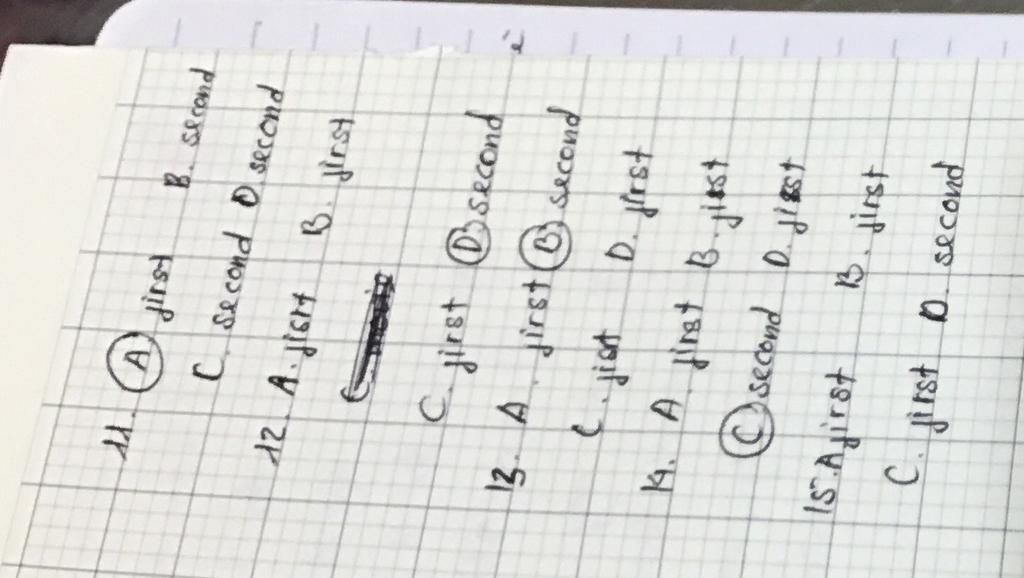 11. A first B. second
C. second D second
12. A. fisrt B. first
C. first D second
13. A. first B second
C. fisrt D. first
14. A first B. first
C second D. first
15. A first B. first
C. first D. second